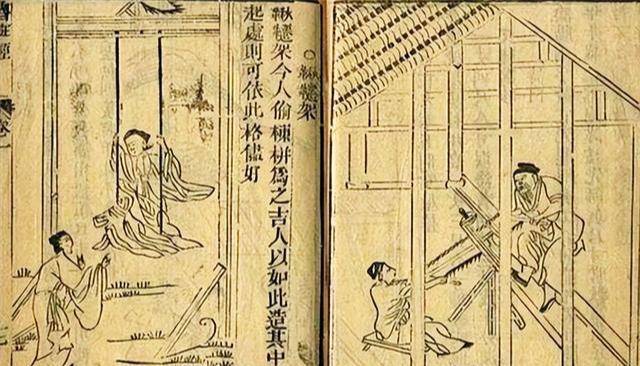 ○鞦韆架
鞦韆架今人偷棟栟爲之吉人以如此造其中
起處則可依此格儘好
班經
卷一